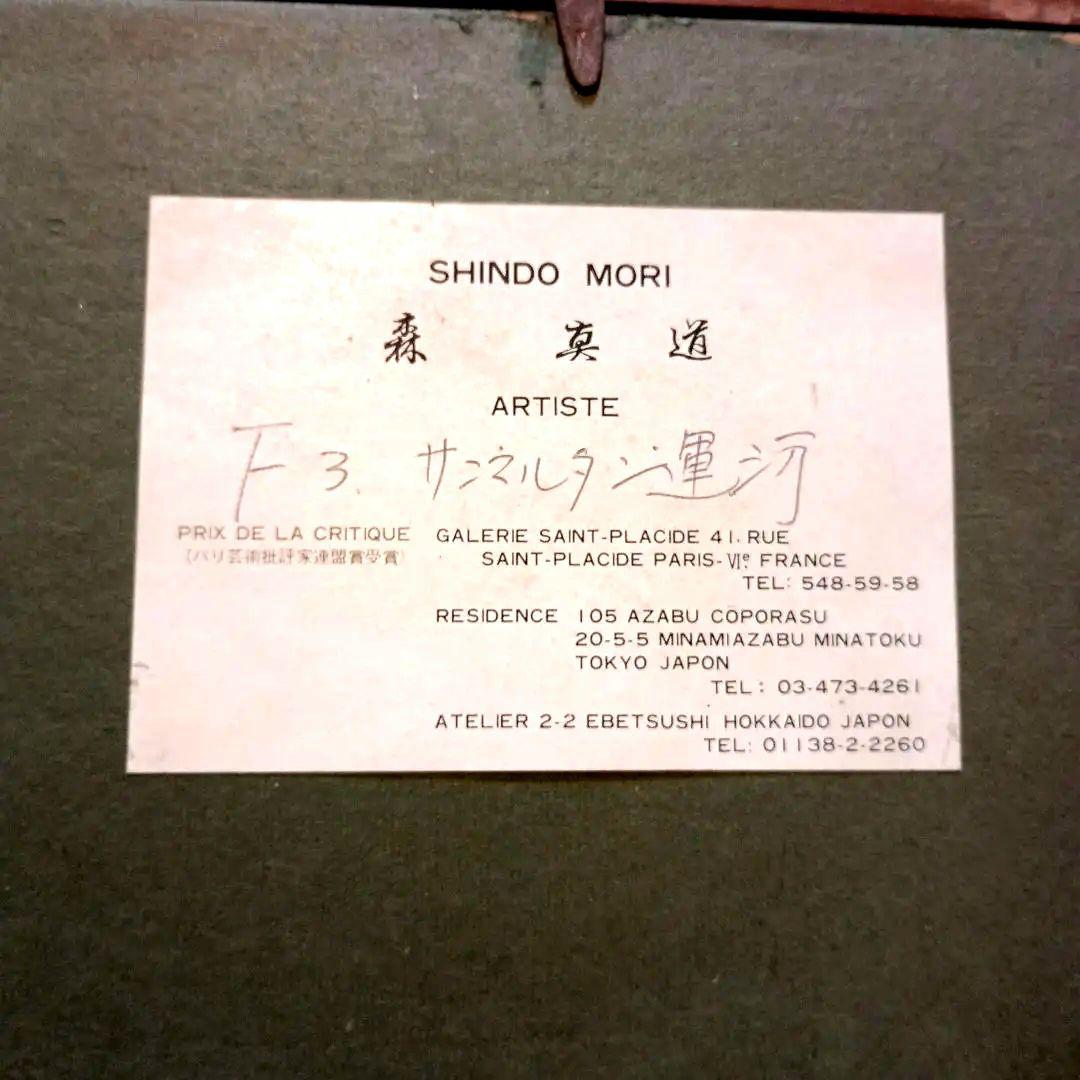 SHINDO MORI
森 真道
ARTISTE
F3. サンマルタン運河
PRIX DE LA CRITIQUE
(パリ芸術批評家連盟賞受賞)
GALERIE SAINT-PLACIDE 41, RUE
SAINT-PLACIDE PARIS-VIe FRANCE
TEL: 548-59-58
RESIDENCE 105 AZABU CŌPORASU
20-5-5 MINAMIAZABU MINATOKU
TOKYO JAPON
TEL: 03-473-4261
ATELIER 2-2 EBETSUSHI HOKKAIDO JAPON
TEL: 01138-2-2260